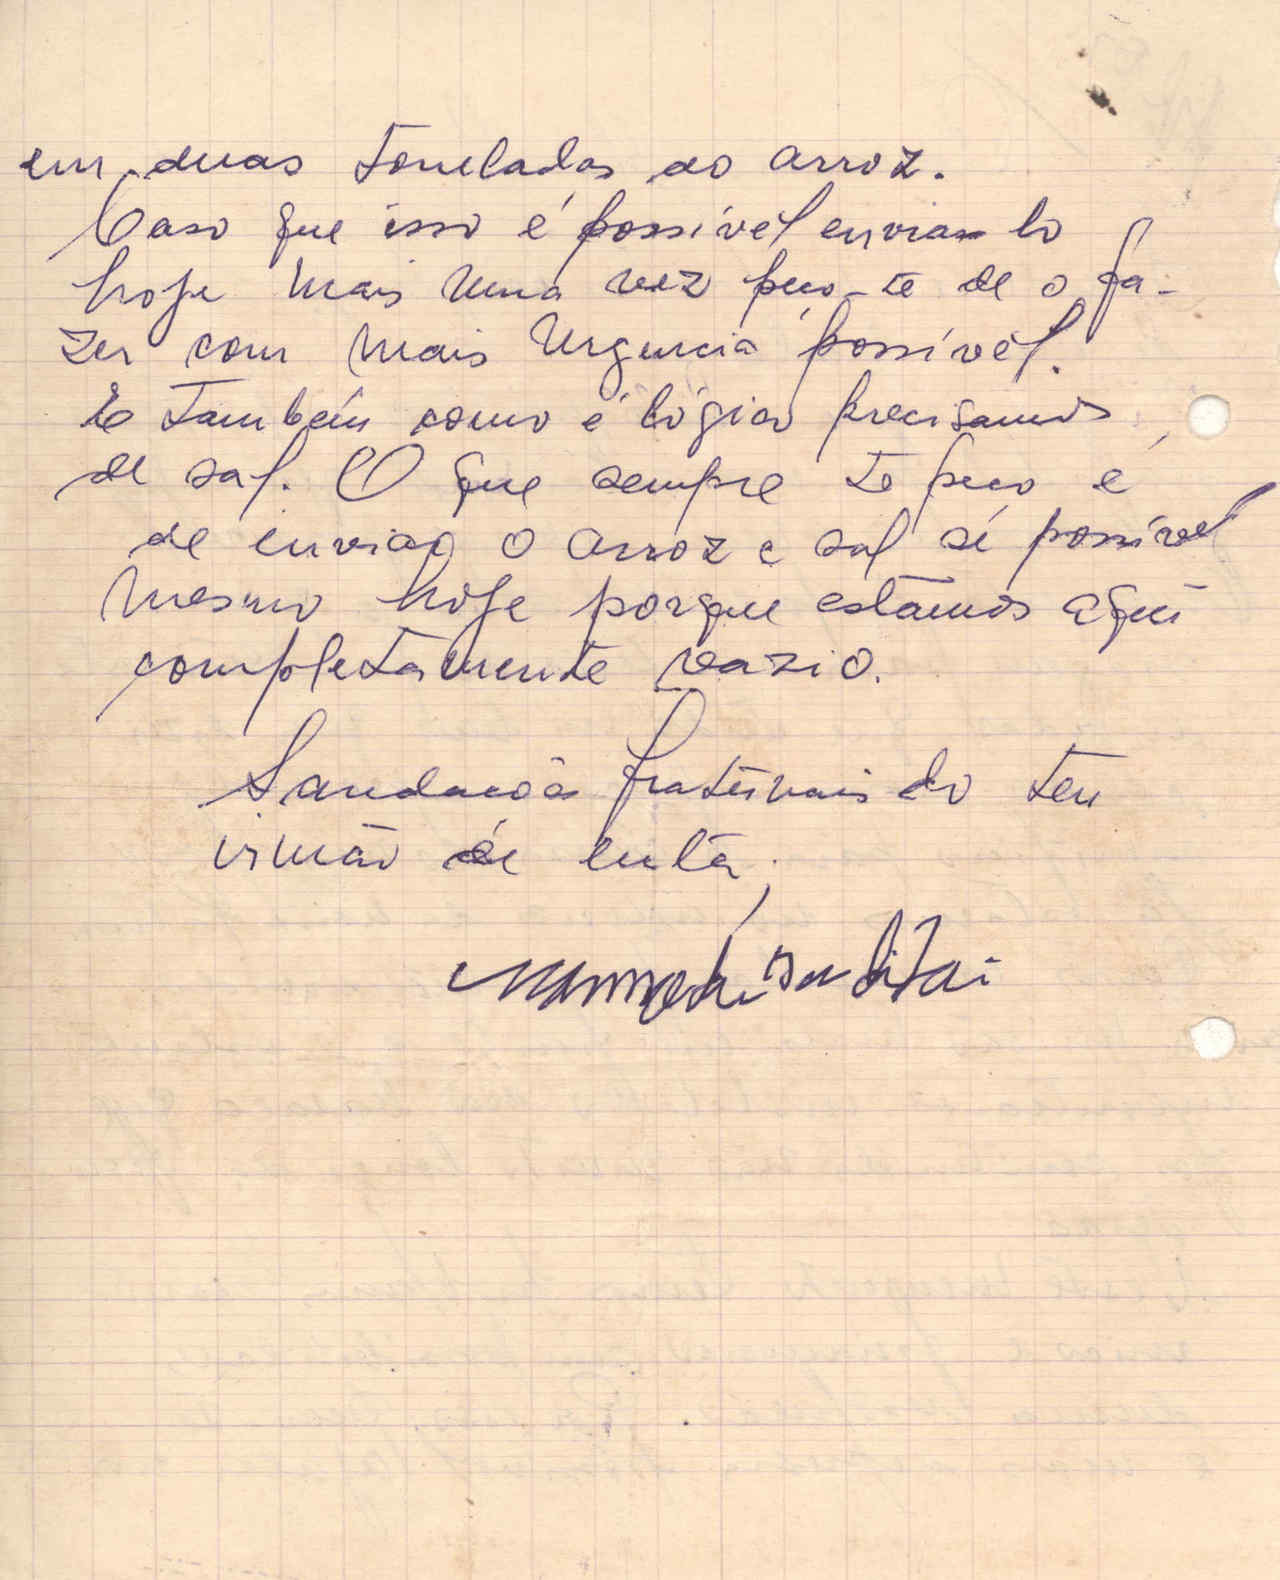 em duas toneladas do arroz.
Caso que isso é possível enviar lo
hoje mais uma vez peço-te de o fa-
zer com mais urgencia possível.
E também como é lógico precisamos
de sal. O que sempre te peço é
de enviar o arroz e sal sé possível
mesmo hoje porque estamos aqui
completamente vazio.
Saudacoês fraternais do teu
irmão de luta,